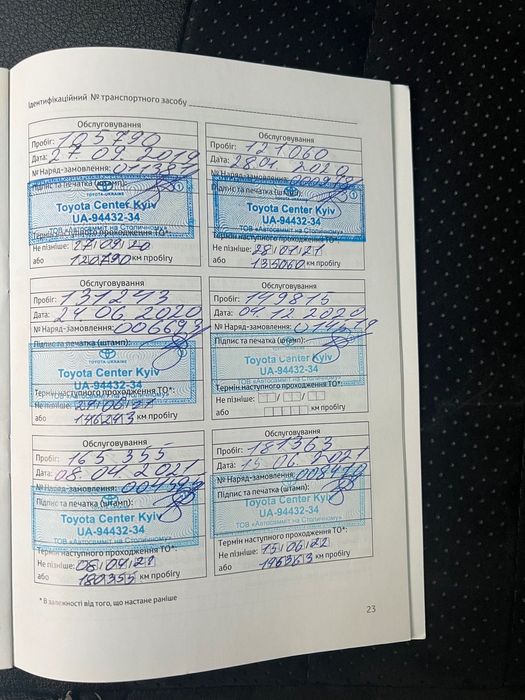 Ідентифікаційний № транспортного засобу
Обслуговування
Пробіг: 105790
Дата: 27.09.2019
№ Наряд-замовлення:
Підпис та печатка (штамп):
TOYOTA-UKRAINE
Toyota Center Kyiv
UA-94432-34
ТОВ «Автосамміт на Столичному»
Термін наступного проходження ТО*:
Не пізніше: 27/09/20
або 120790 км пробігу
Обслуговування
Пробіг: 121060
Дата: 28.01 2020
№ Наряд-замовлення:
Підпис та печатка (штамп):
Toyota Center Kyiv
UA-94432-34
ТОВ «Автосамміт на Столичному»
Термін наступного проходження ТО*:
Не пізніше: 28/01/21
або 135060 км пробігу
Обслуговування
Пробіг: 131243
Дата: 24.06 2020
№ Наряд-замовлення:
Підпис та печатка (штамп):
TOYOTA-UKRAINE
Toyota Center Kyiv
UA-94432-34
Термін наступного проходження ТО*:
Не пізніше:
або 146243 км пробігу
Обслуговування
Пробіг: 149815
Дата: 04.12 2020
№ Наряд-замовлення:
Підпис та печатка (штамп):
Toyota Center Kyiv
UA-94432-34
Термін наступного проходження ТО*:
Не пізніше: / /
або км пробігу
Обслуговування
Пробіг: 165 355
Дата: 08.04 2021
№ Наряд-замовлення:
Підпис та печатка (штамп):
Toyota Center Kyiv
UA-94432-34
ТОВ «Автосамміт на Столичному»
Термін наступного проходження ТО*:
Не пізніше: 08/04/22
або 180355 км пробігу
Обслуговування
Пробіг: 181363
Дата: 15.06 2021
№ Наряд-замовлення:
Підпис та печатка (штамп):
Toyota Center Kyiv
UA-94432-34
ТОВ «Автосамміт на Столичному»
Термін наступного проходження ТО*:
Не пізніше: 15/06/22
або 196363 км пробігу
* В залежності від того, що настане раніше
23